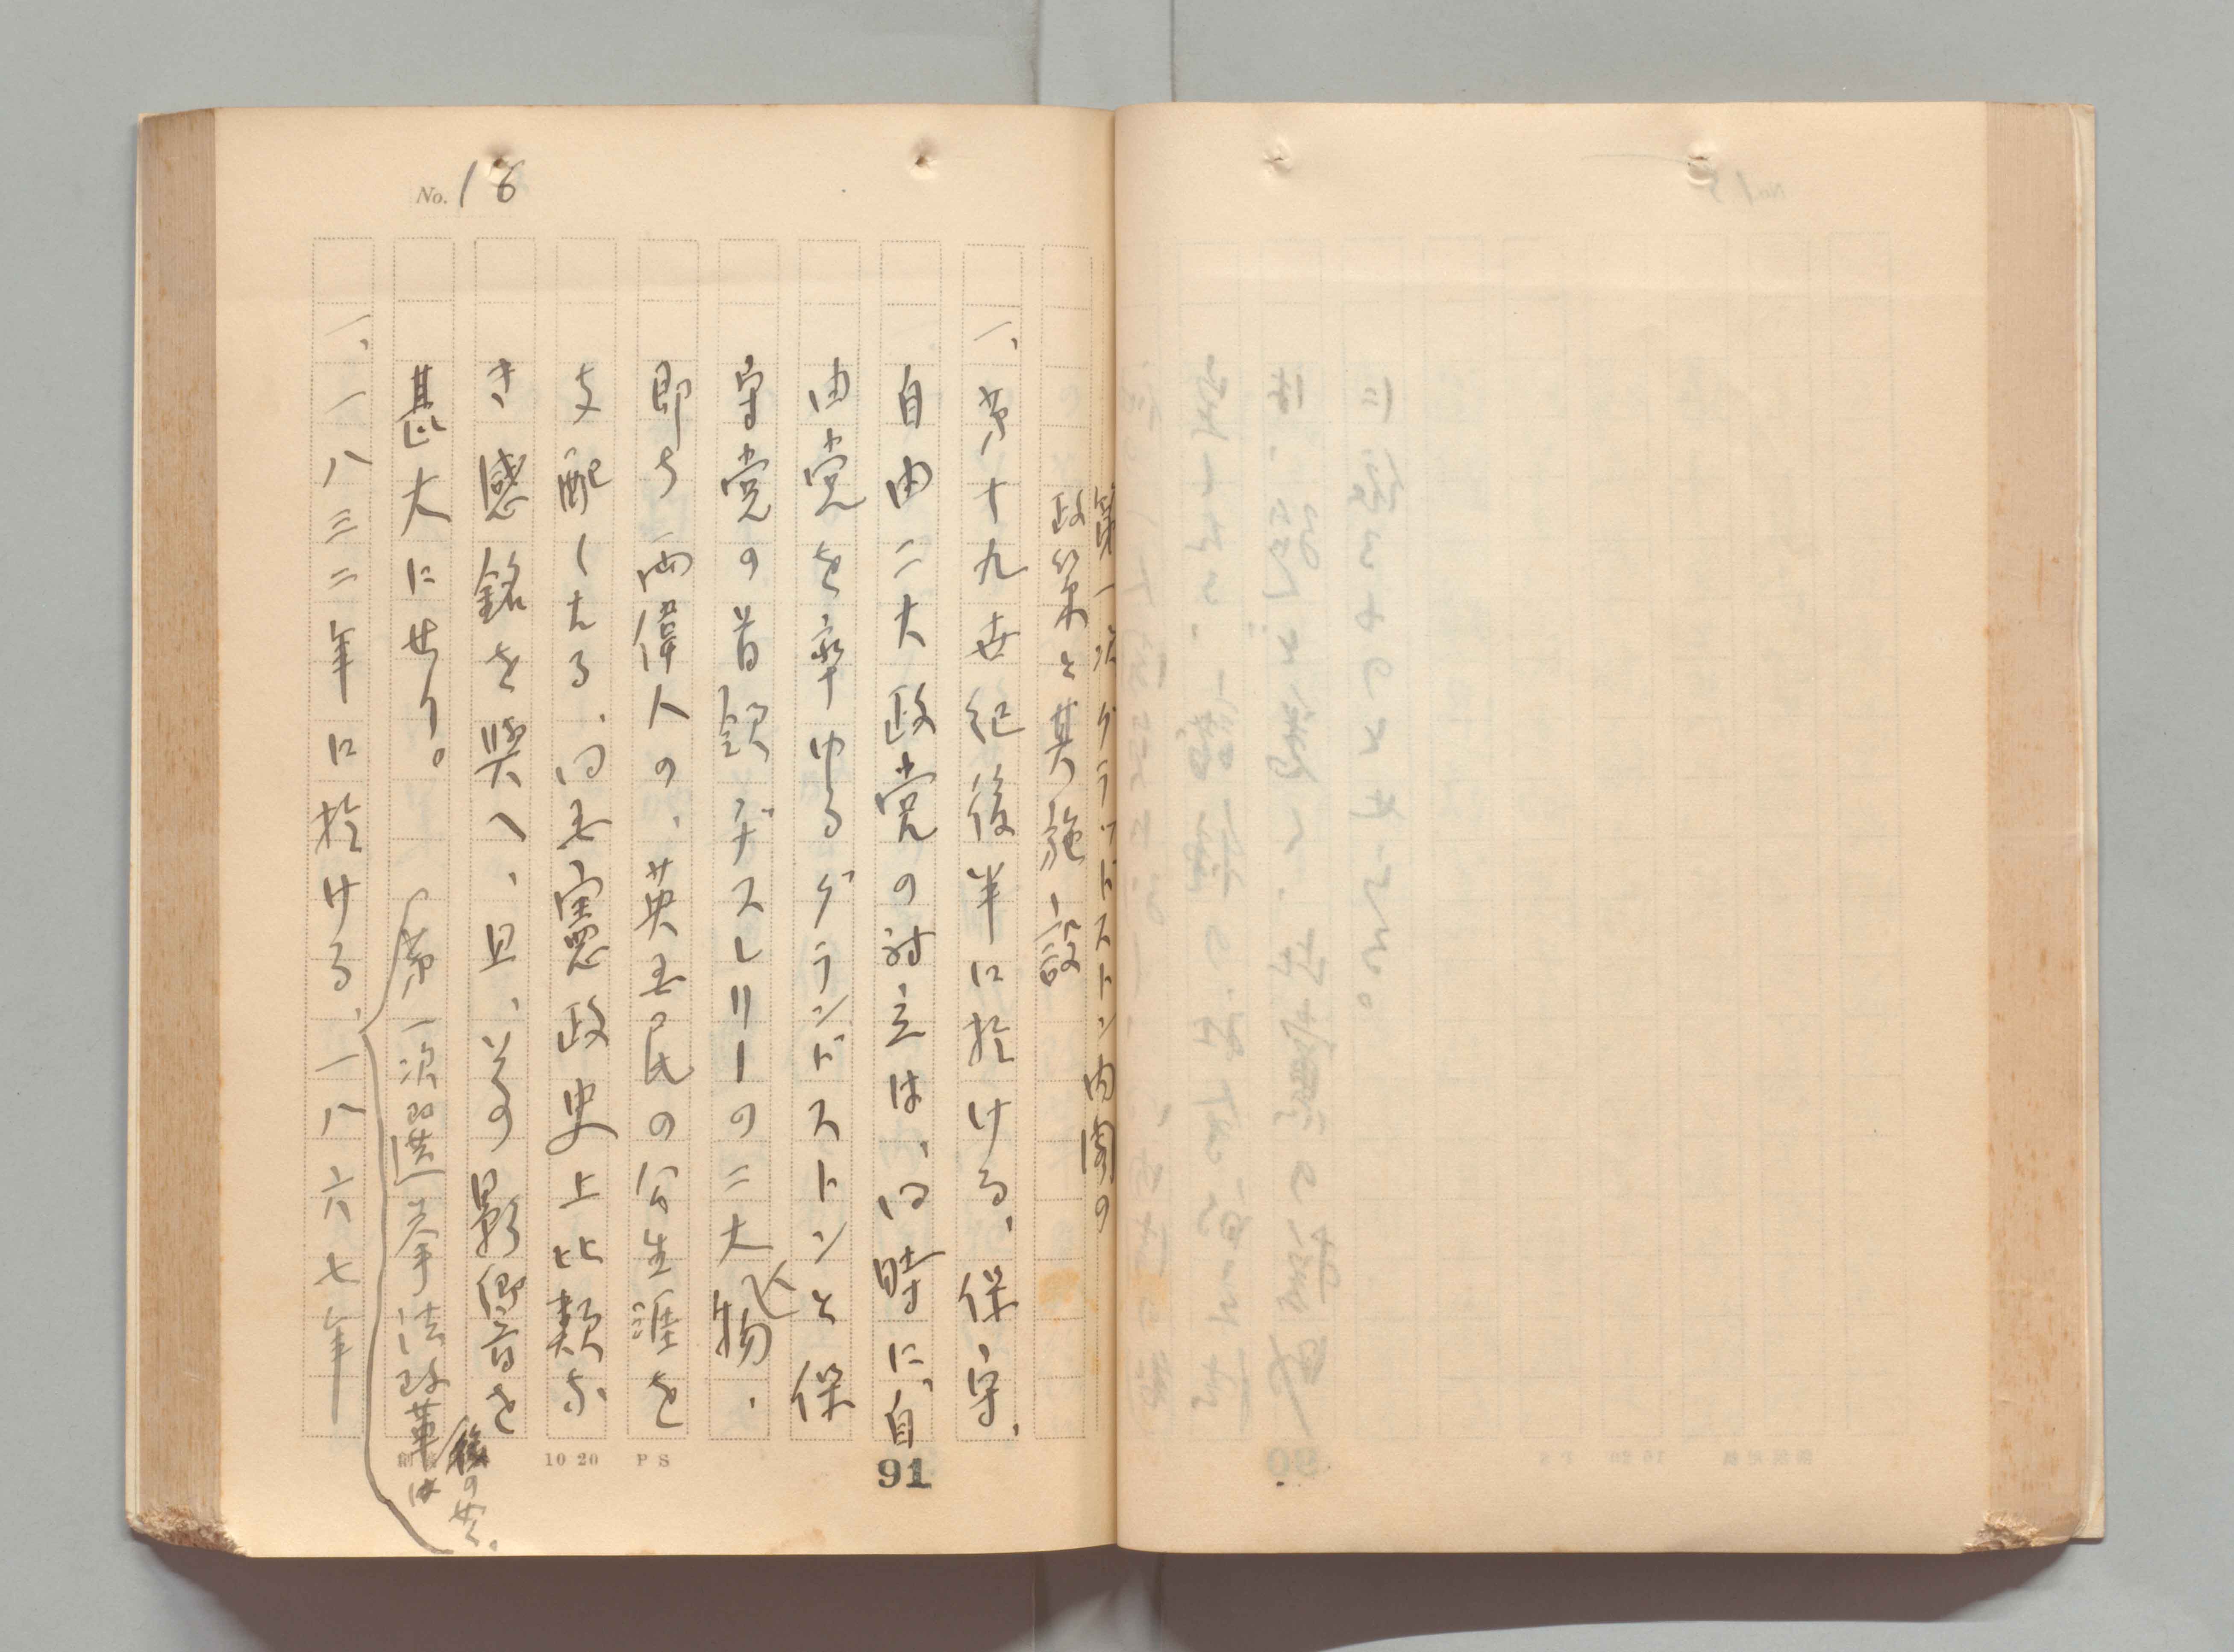 No. 18
第一次グラッドストン内閣の
政策と其施設
一、第十九世紀後半に於ける、保守、
自由二大政党の対立は、同時に、自
由党を率ゆるグランドストンと保
守党の首領ヂスレリーの二大人物、
即ち両偉人の、英国民の公生涯を
支配したる、同国憲政史上比類な
き感銘を与へ、且、その影響を
甚大にせり。
第一次選挙法改革は
後の
一、一八三二年に於ける、一八六七年
10 20 PS
91